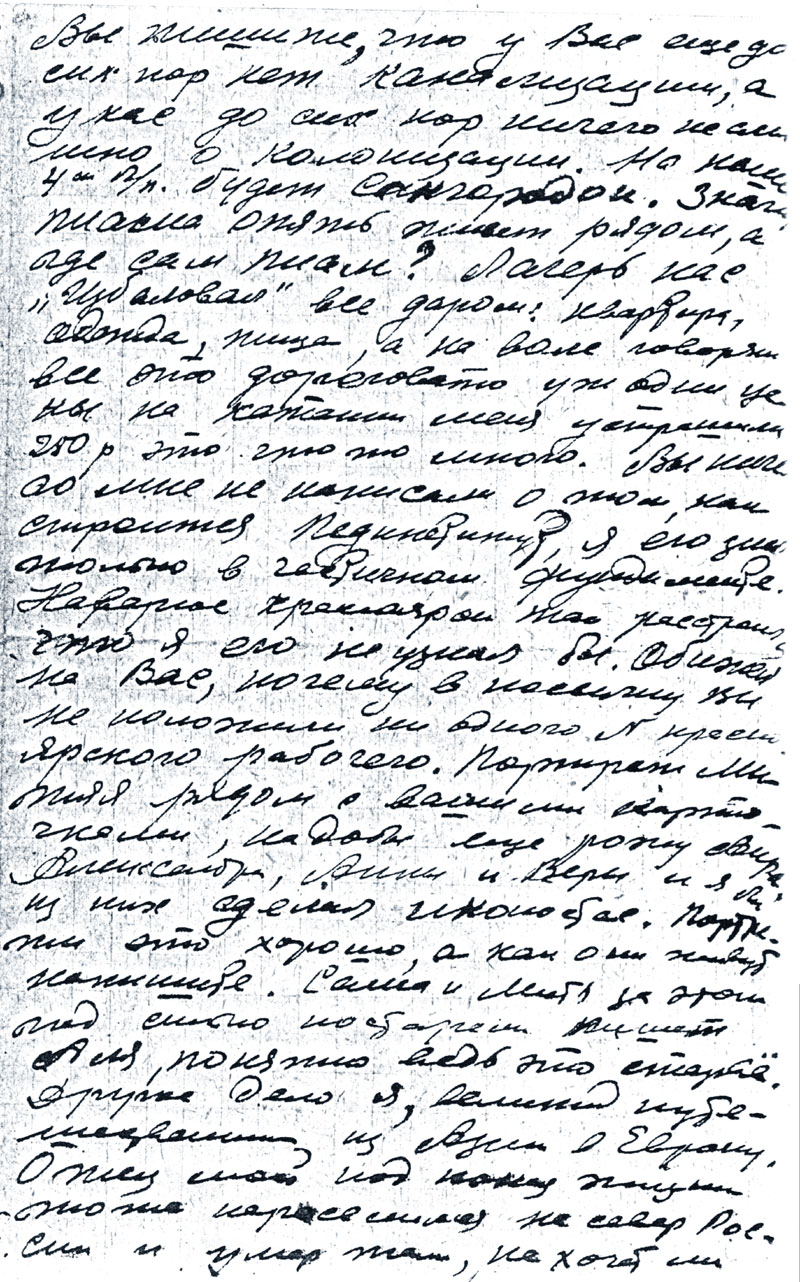 Вы пишите, что у Вас еще до
сих пор нет канализации, а
у нас до сих пор ничего не слы
шно о колонизации. На наш
4ый л/п. будет Сангородом. Знач
письма опять пишет рядом, а
где сам писал? Лагерь нас
„Избаловал" все даром: квартира,
одежда, пища, а на воле говорят
все это дороговато уж одни це
ны на катанки меня устрашили
250 р это что то много. Вы ниче
го мне не написали о том, как
строится Пединститут, я его зн
только в частичном фундаменте.
Наверное Красноярск так расстроил
что я его не узнал бы. Обижа
на Вас, почему в посылку Вы
не положили ни одного N красн
ярского рабочего. Портрет Ми
тя рядом с вашими карто-
чками, надобы еще рожу
Александра, Анны и Веры и я бы
из них сделал иконостас. Портре-
ты это хорошо, а как они живут
напишите. Саша и Митя за этот
год сильно постарели пишет
Аля, понятно ведь это стазис.
Другое дело я, великий путе-
шественник из Азии в Европу.
Отец мой под конец жизни
тоже переселился на север Рос-
сии и умер там, не хотел ли